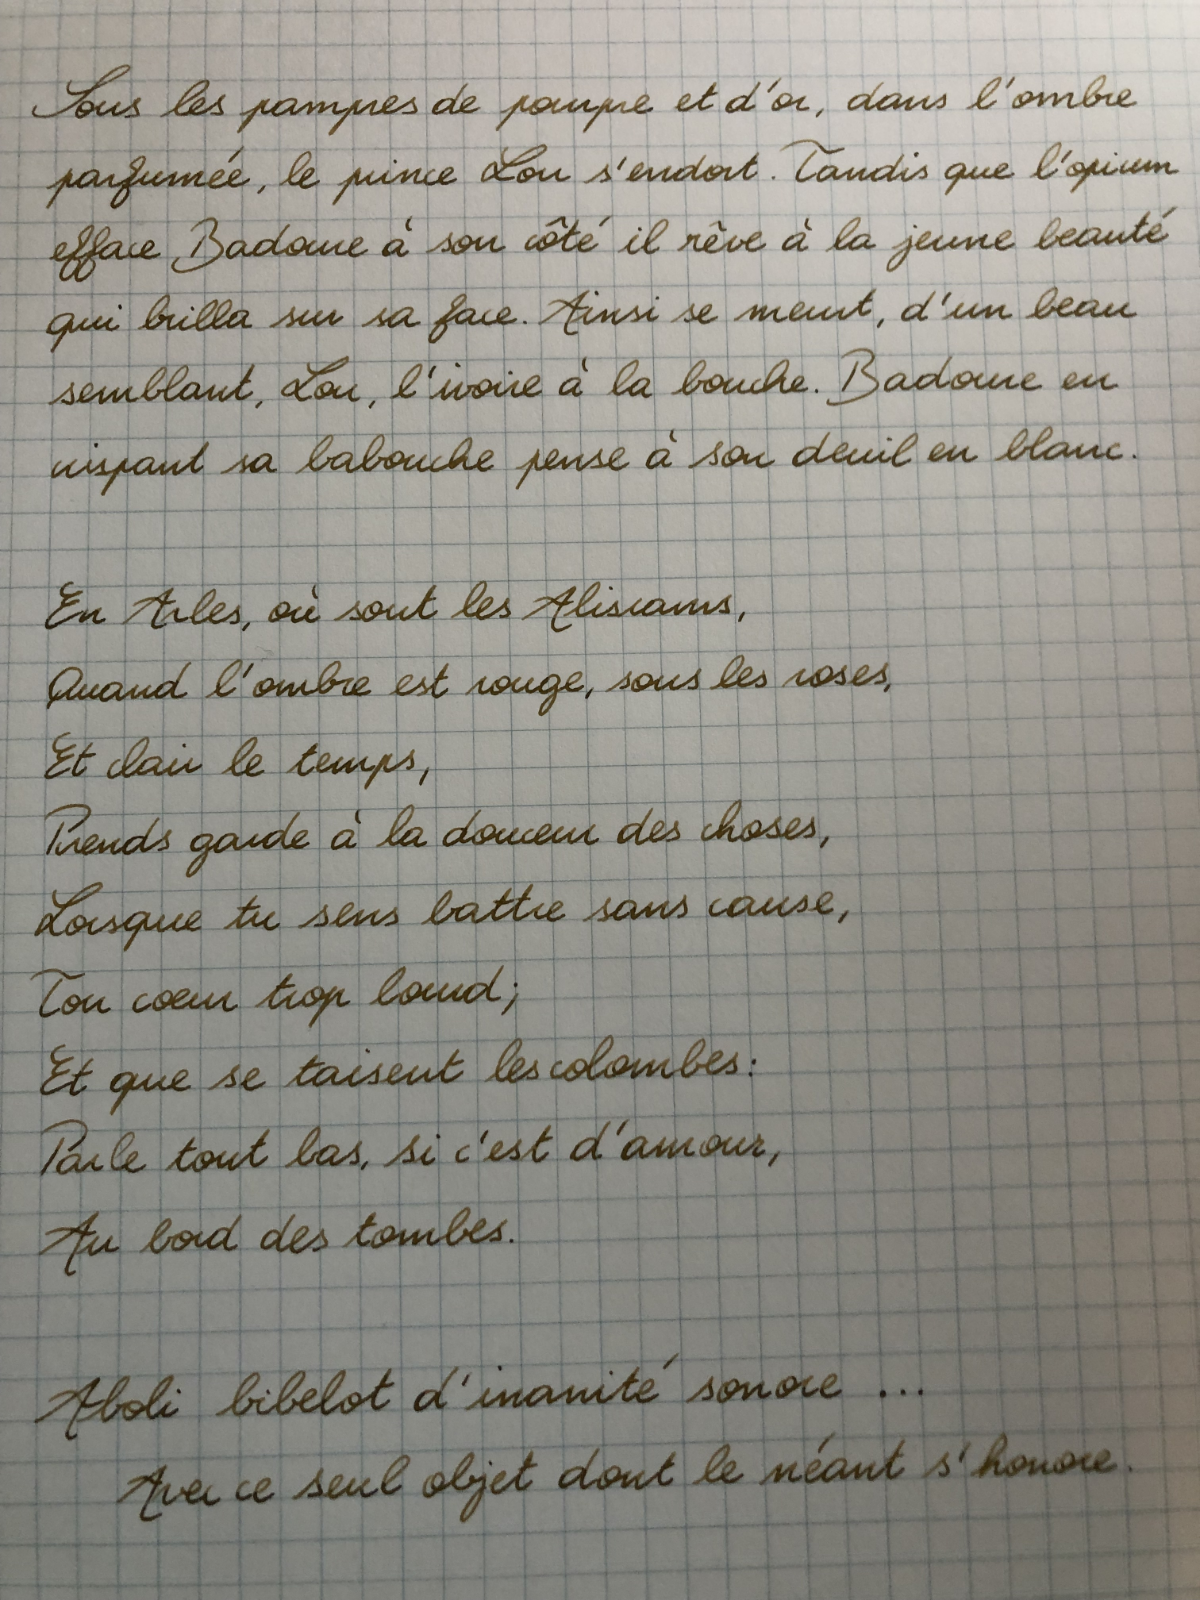 Sous les pampres de pourpre et d'or, dans l'ombre
parfumée, le prince Lou s'endort. Tandis que l'opium
efface Badoure à son côté il rêve à la jeune beauté
qui brilla sur sa face. Ainsi se meurt, d'un beau
semblant, Lou, l'ivoire à la bouche. Badoure en
crispant sa babouche pense à son deuil en blanc.

En Arles, où sont les Aliscams,
Quand l'ombre est rouge, sous les roses,
Et clair le temps,
Prends garde à la douceur des choses,
Lorsque tu sens battre sans cause,
Ton coeur trop lourd;
Et que se taisent les colombes:
Parle tout bas, si c'est d'amour,
Au bord des tombes.

Aboli bibelot d'inanité sonore ...
Avec ce seul objet dont le néant s'honore.